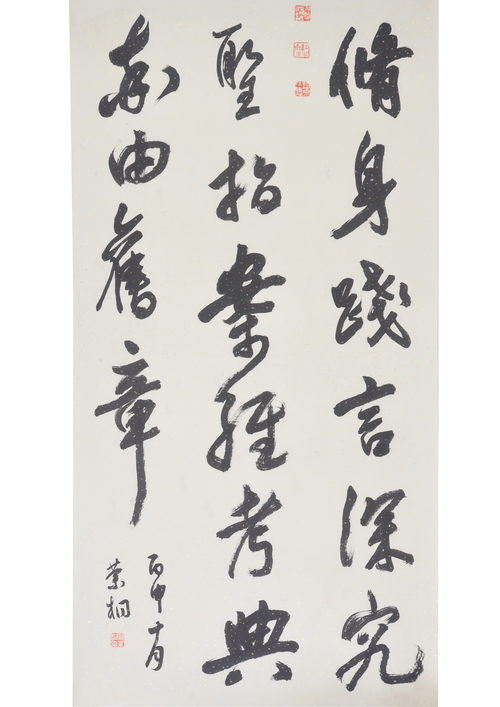 脩身踐言深究
聖指案經考典
率由舊章
丙申十月
荣桐